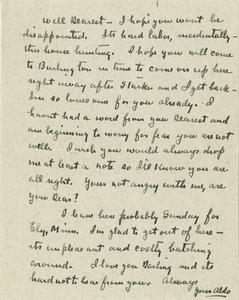 Well Dearest - I hope you wont be
disappointed. Its hard labor, incidentally -
this house hunting. I hope you will come
to Burlington in time to come on up here
right away after Starks and I get back -
Im so lonesome for you already. I
havnt had a word from you Dearest and
am beginning to worry for fear you are not
well. I wish you would always drop
me at least a note so Ill know you are
all right. Your not angry with me, are
you Dear?
I leave here probably Sunday for
Ely, Minn. Im glad to get out of here -
its unpleasant and costly batching
around. I love you Darling and its
hard not to hear from you. Always
Your Aldo